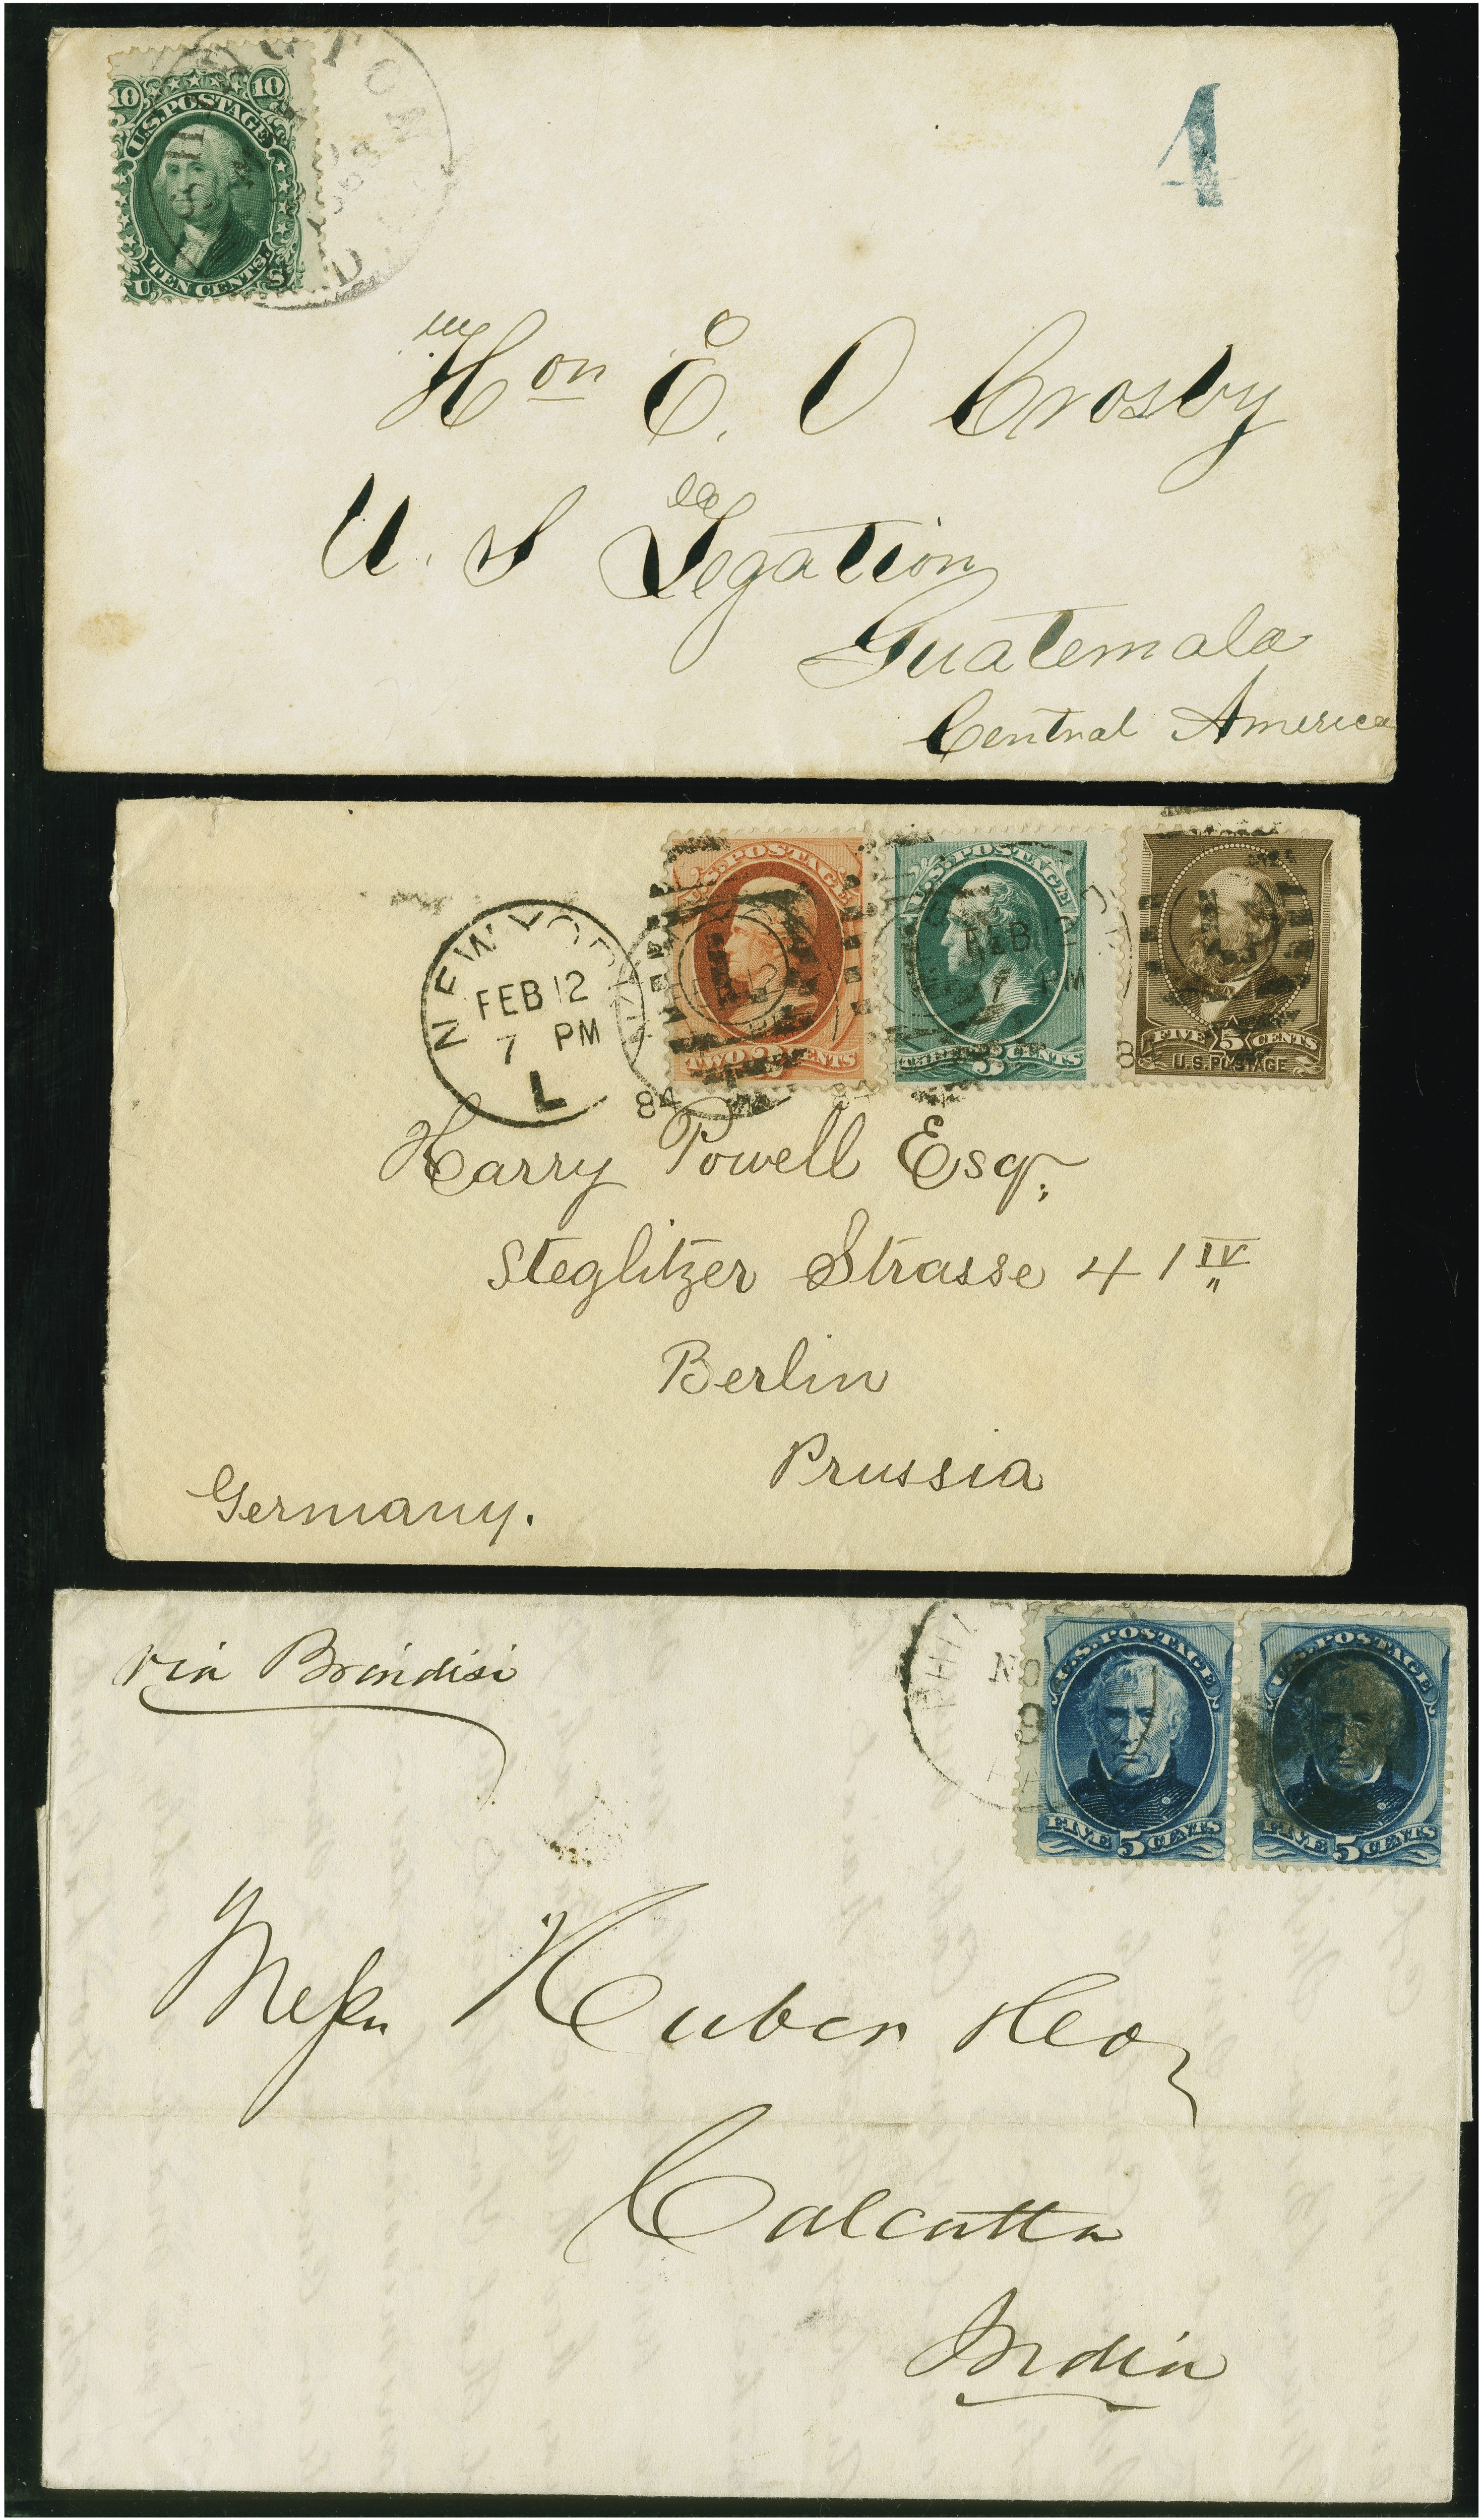 10 10
U.S. POSTAGE
TEN CENTS.
U. S.
4
Hon E. O Crosby
U. S Legation
Guatemala
Central America
NEW YORK
FEB 12
7 PM
L
84
U.S. POSTAGE
TWO 2 CENTS
U.S. POSTAGE
FEB
7 PM
THREE 3 CENTS
8
FIVE 5 CENTS
U.S. POSTAGE
Harry Powell Esqr.
Steglitzer Strasse 41 IV
Berlin
Prussia
Germany.
via Brindisi
NO
9
PA
U.S. POSTAGE
FIVE 5 CENTS
U.S. POSTAGE
FIVE 5 CENTS
Messrs Huber &Co
Calcutta
India